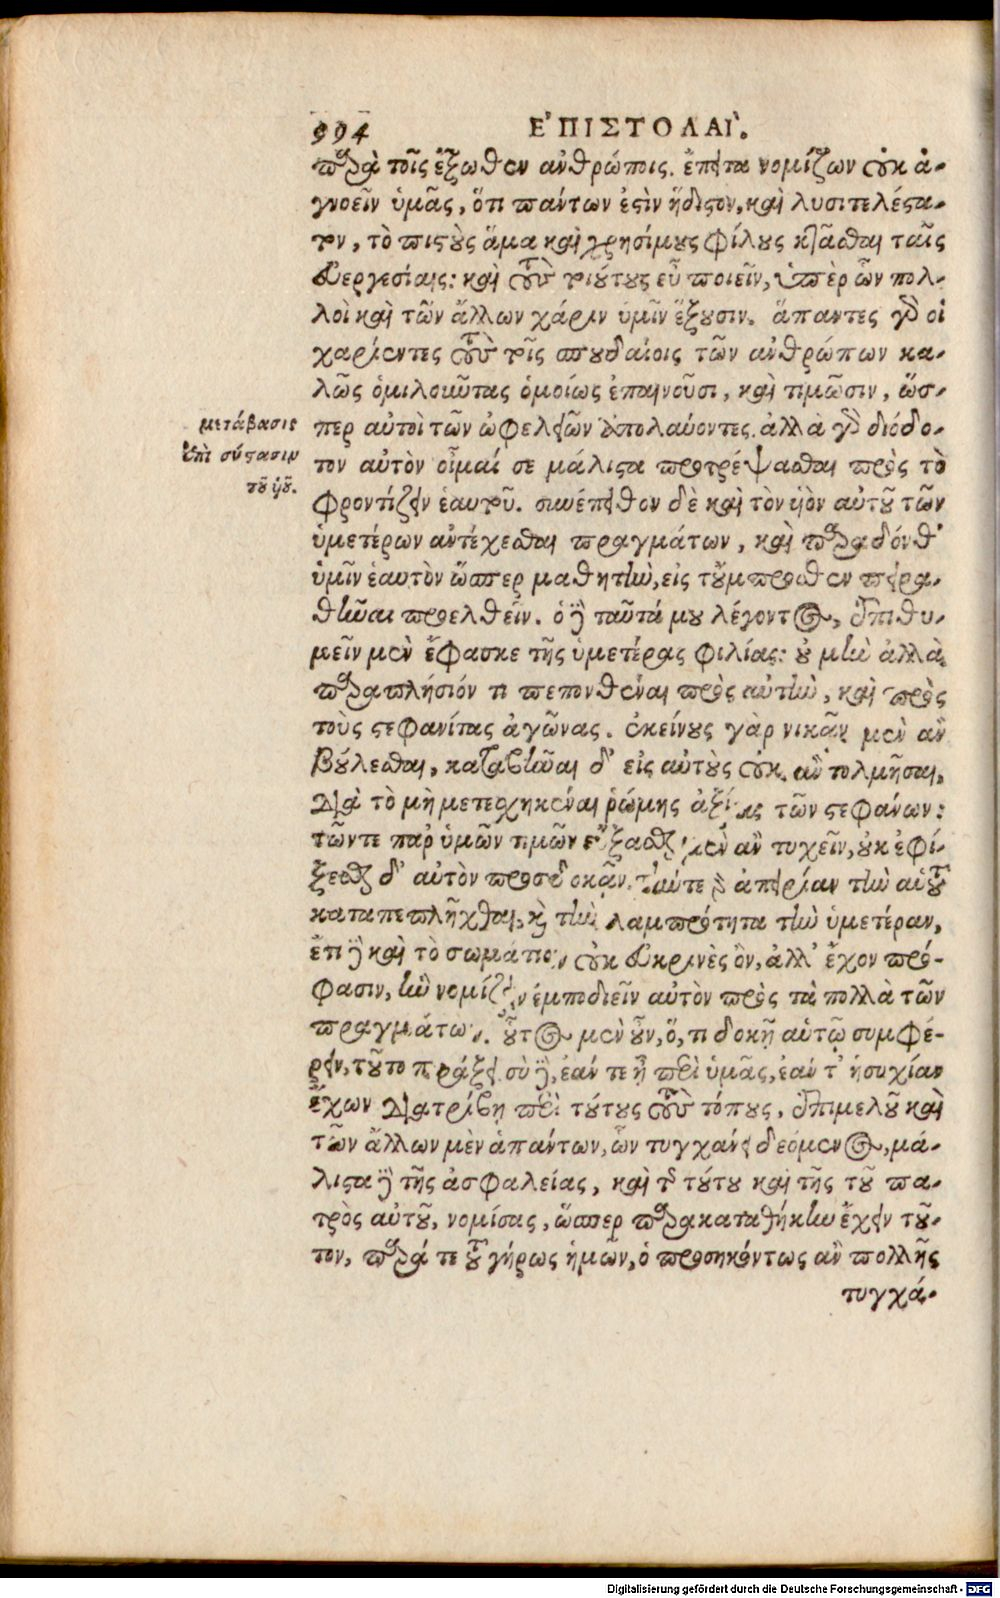 994 ΕΠΙΣΤΟΛΑΙ.
παρὰ τοῖς ἔξωθεν ἀνθρώποις. ἔπειτα νομίζων οὐκ ἀ-
γνοεῖν ὑμᾶς, ὅτι πάντων ἐστὶν ἥδιστον, καὶ λυσιτελέστα-
τον, τὸ πιστοὺς ἅμα καὶ χρησίμους φίλους κτᾶσθαι ταῖς
εὐεργεσίαις: καὶ τοὺς τοιούτους εὖ ποιεῖν, ὑπὲρ ὧν πολ-
λοὶ καὶ τῶν ἄλλων χάριν ὑμῖν ἕξουσιν. ἅπαντες γὸ οἱ
χαρίεντες τοὺς τοῖς σπουδαίοις τῶν ἀνθρώπων κα-
λῶς ὁμιλοῦντας ὁμοίως ἐπαινοῦσι, καὶ τιμῶσιν, ὥσ-
μετάβασις
ἐπὶ σύστασιν
τοῦ υἱοῦ.
περ αὐτοὶ τῶν ὠφελειῶν ἀπολαύοντες. ἀλλὰ γὸ διόδο-
τον αὐτὸν οἶμαί σε μάλιστα προτρέψασθαι πρὸς τὸ
φροντίζειν ἑαυτοῦ. συνέπειθον δὲ καὶ τὸν υἱὸν αὐτοῦ τῶν
ὑμετέρων ἀντέχεσθαι πραγμάτων, καὶ παραδόνθ᾽
ὑμῖν ἑαυτὸν ὥσπερ μαθητὴν, εἰς τοὔμπροσθεν πειρα-
θῆναι προελθεῖν. ὁ δὲ ταῦτά μου λέγοντος, ἐπιθυ-
μεῖν μὲν ἔφασκε τῆς ὑμετέρας φιλίας: οὐ μὴν ἀλλὰ
παραπλήσιόν τι πεπονθέναι πρὸς αὐτὴν, καὶ πρὸς
τοὺς στεφανίτας ἀγῶνας. ἐκείνους γὰρ νικᾶν μὲν ἂν
βούλεσθαι, καταβῆναι δ᾽ εἰς αὐτοὺς οὐκ ἂν τολμῆσαι,
διὰ τὸ μὴ μετεσχηκέναι ῥώμης ἀξίας τῶν στεφάνων:
τῶν τε παρ᾽ ὑμῶν τιμῶν εὔξασθαι μὲν ἂν τυχεῖν, οὐκ ἐφί-
ξεσθαι δ᾽ αὐτὸν προσδοκᾶν. τήν τε δ ἀπειρίαν τὴν αὑτοῦ
καταπεπλῆχθαι, καὶ τὴν λαμπρότητα τὴν ὑμετέραν,
ἔτι δὲ καὶ τὸ σωμάτιον οὐκ εὐκρινὲς ὂν, ἀλλ᾽ ἔχον πρό-
φασιν, ἣν νομίζειν ἐμποδιεῖν αὐτὸν πρὸς τὰ πολλὰ τῶν
πραγμάτων. οὗτος μὲν οὖν, ὅ, τι δοκῇ αὑτῷ συμφέ-
ρειν, τοῦτο πράξει. σὺ δὲ, ἐάν τε ᾖ περὶ ὑμᾶς, ἐάν τ᾽ ἡσυχίαν
ἔχων διατρίβῃ περὶ τούτους τοὺς τόπους, ἐπιμελοῦ καὶ
τῶν ἄλλων μὲν ἁπάντων, ὧν τυγχάνει δεόμενος, μά-
λιστα δὲ τῆς ἀσφαλείας, καὶ τ τούτου καὶ τῆς τοῦ πα-
τρὸς αὐτοῦ, νομίσας, ὥσπερ παρακαταθήκην ἔχειν τοῦ-
τον, παρά τε τοῦ γήρως ἡμῶν, ὁ προσηκόντως ἂν πολλῆς
τυγχά-
Digitalisierung gefördert durch die Deutsche Forschungsgemeinschaft - DFG